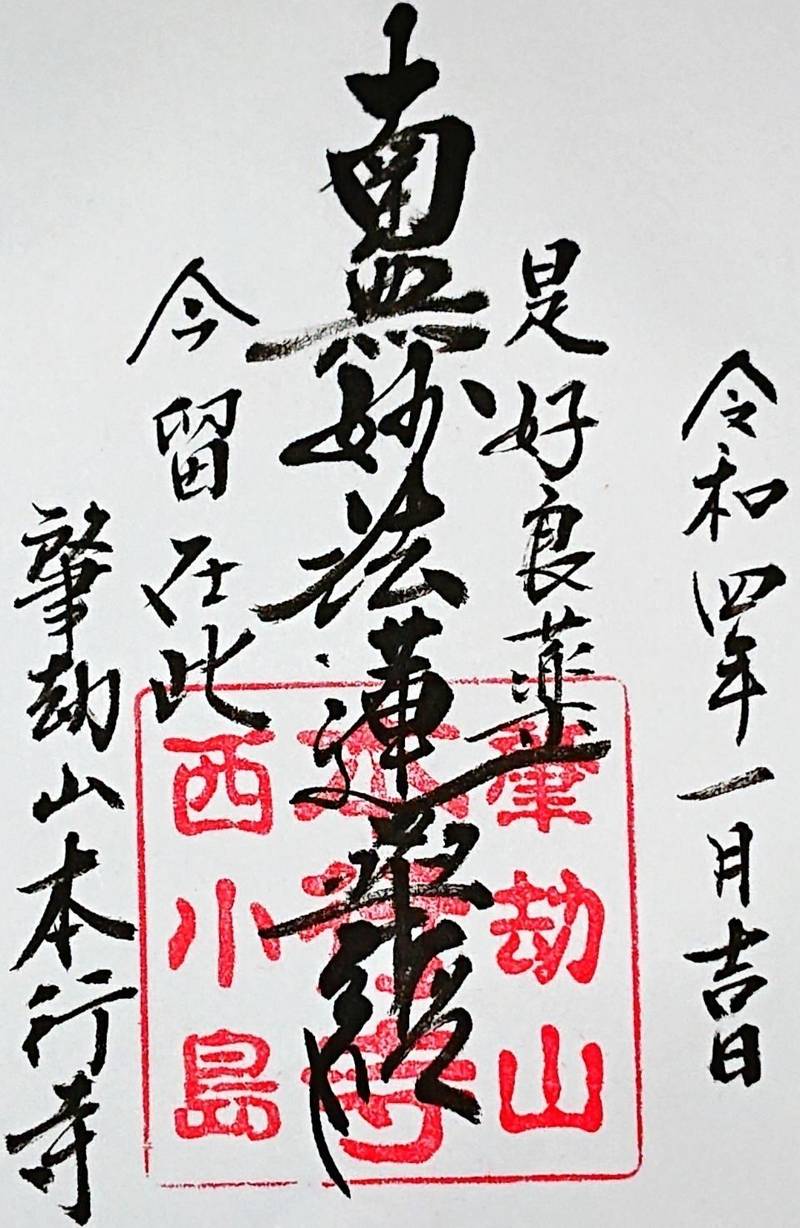 令和四年一月吉日
是好良薬
南無妙法蓮華経
今留在此
肇劫山本行寺
肇劫山
本行寺
西小島